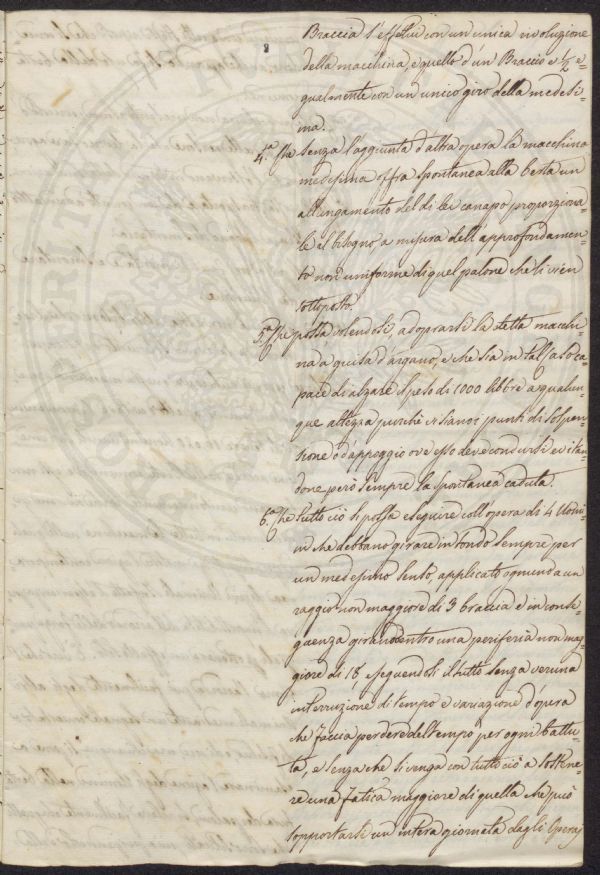 Braccia s'effetui con un unica rivoluzione
della macchina, e quello d'un Braccio e 1/2 e-
gualmente con un unico giro della medesi-
ma.
4.a Che senza l'aggiunta d'altra opera la macchina
medesima offra spontanea alla berta un
allungamento del di lei canapo proporziona-
le al bisogno a misura dell'approfondamen-
to non uniforme di quel palone che li vien
sottoposto.
5.a Che possa volendosi, adoprarsi la stessa macchi-
na a guisa d'argano, e che sia in tal caso ca-
pace di alzare il peso di 1000 libbre a qualun-
que altezza purchè vi siano i punti di sospen-
sione o d'appoggio ove esso deve condursi evitan-
done però sempre la spontanea caduta.
6.a Che tutto ciò si possa eseguire coll'opera di 4 Uomi-
ni che debbano girare in tondo sempre per
un medesimo senso, applicato ognuno a un
raggio non maggiore di 3 braccia e in conse-
guenza girando entro una periferia non mag-
giore di 18 eseguendosi il tutto senza veruna
interruzione di tempo e variazione d'opera
che faccia perdere del tempo per ogni battu-
ta, e senza che si venga con tutto ciò a sostene-
re una fatica maggiore di quella che può
sopportarsi un intera giornata dagli Operaj